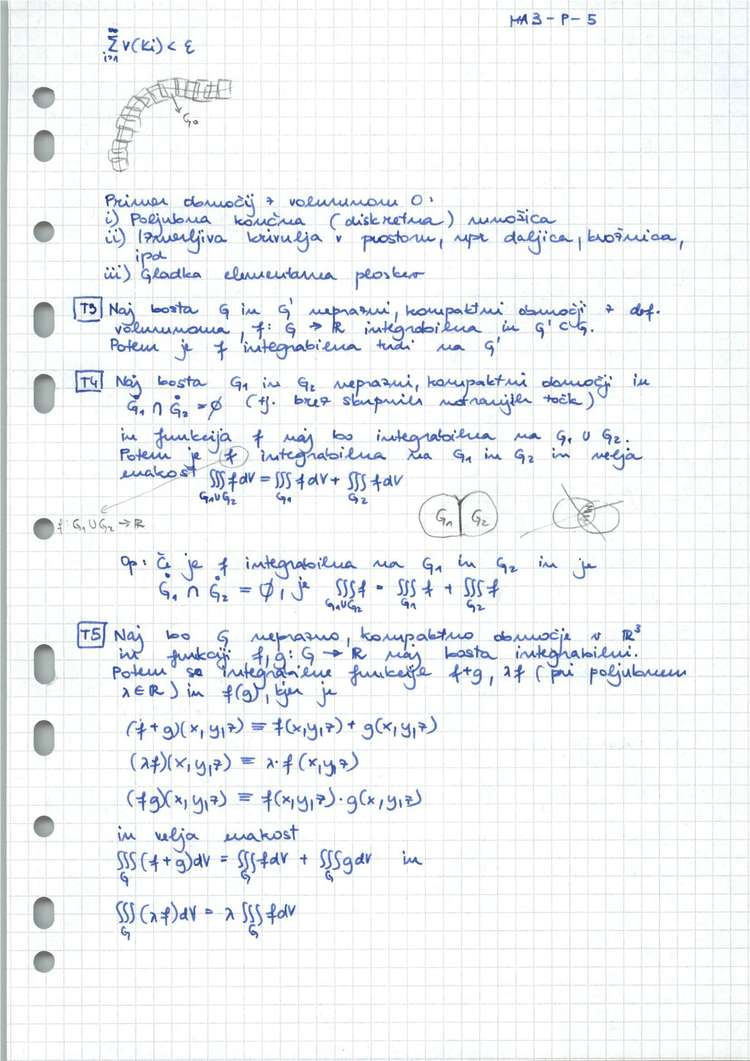 MA3-P-5
∞
∑ V(Ki) < ε
i=1
G₀
Primer območij z volumnom 0:
i) Poljubna končna (diskretna) množica
ii) Izmerljiva krivulja v prostoru, npr daljica, krožnica,
ipd
iii) Gladka elementarna ploskev
T3 Naj bosta G in G' neprazni, kompaktni območji z def.
volumnoma, f: G → ℝ integrabilna in G' ⊂ G.
Potem je f integrabilna tudi na G'
T4 Naj bosta G₁ in G₂ neprazni, kompaktni območji in
G̊₁ ∩ G̊₂ = ∅ (tj. brez skupnih notranjih točk)
in funkcija f naj bo integrabilna na G₁ ∪ G₂.
Potem je f integrabilna na G₁ in G₂ in velja
enakost ∭ f dV = ∭ f dV + ∭ f dV
G₁∪G₂ G₁ G₂
f: G₁ ∪ G₂ → ℝ
G₁ G₂
Op: Če je f integrabilna na G₁ in G₂ in je
G̊₁ ∩ G̊₂ = ∅, je ∭ f = ∭ f + ∭ f
G₁∪G₂ G₁ G₂
T5 Naj bo G neprazno, kompaktno območje v ℝ³
in funkciji f, g: G → ℝ naj bosta integrabilni.
Potem so integrabilne funkcije f+g, λf (pri poljubnem
λ ∈ ℝ) in f(g), kjer je
(f+g)(x,y,z) ≡ f(x,y,z) + g(x,y,z)
(λf)(x,y,z) ≡ λ·f(x,y,z)
(fg)(x,y,z) ≡ f(x,y,z)·g(x,y,z)
in velja enakost
∭ (f+g)dV = ∭ f dV + ∭ g dV in
G G G
∭ (λf)dV = λ ∭ f dV
G G